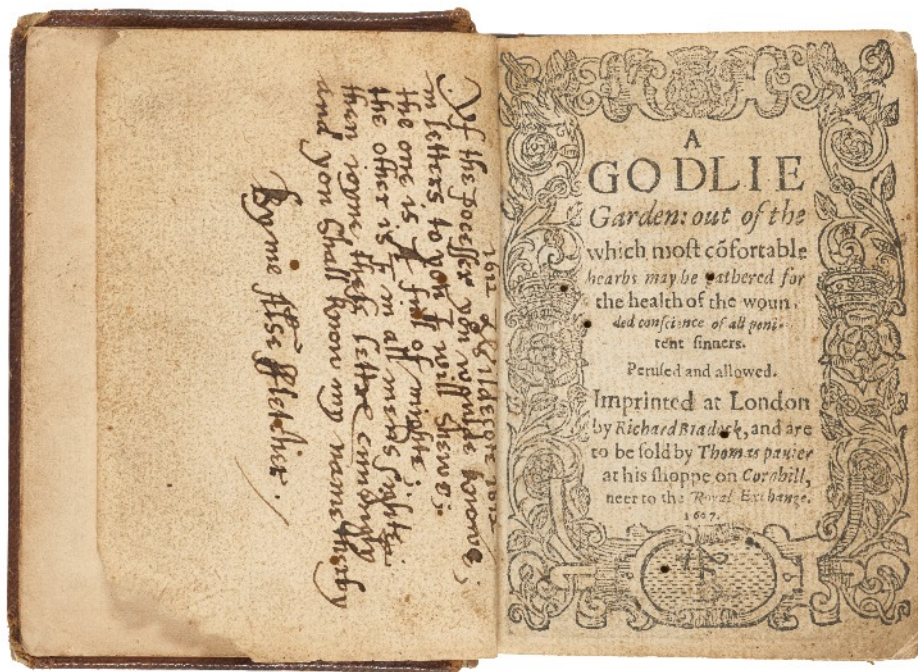 1612 Aprildesore 1612
If the pocesser you woulde knowe,
in letters to you I will shewe:
the one is A full of mighte:
the other is F in all mens sighte
then ioyne theis letters cuninglye
and you shall know my name therby
By me Alse ffletcher.
A
GODLIE
Garden: out of the
which most cõfortable
hearbs may be gathered for
the health of the woun-
ded conscience of all peni-
tent sinners.
Perused and allowed.
Imprinted at London
by Richard Bradock, and are
to be sold by Thomas pauier
at his shoppe on Cornhill,
neer to the Royal Exchange.
1607.